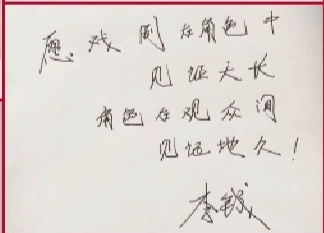 愿戏剧在角色中
见证天长
角色在观众间
见证地久！
李钺